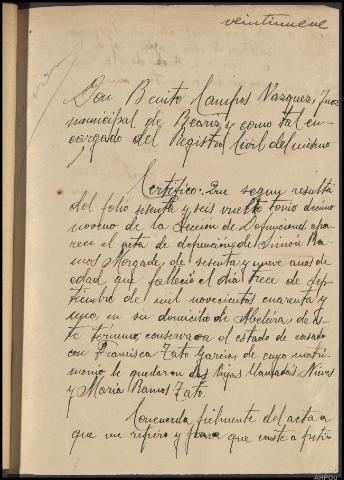 veintinueve
Don Benito Campos Vazquez, Juez
municipal de Beariz y como tal en-
cargado del Registro Civil del mismo
Certifico: Que segun resulta
del folio sesenta y seis vuelto tomo decimo
noveno de la Seccion de Defunciones apa-
rece el acta de defuncion de Simón Ra-
mos Morgade, de sesenta y nueve años de
edad que falleció el dia trece de Sep-
tiembre de mil novecientos cuarenta y
uno, en su domicilio de Abeleira, de és-
te termino, conservaba el estado de casado
con Francisca Tato Garcia, de cuyo matri-
monio le quedaron dos hijas llamadas Nieves
y Maria Ramos Tato.
Concuerda fielmente del acta a
que me refiero y para que conste a peti-
AHPOu